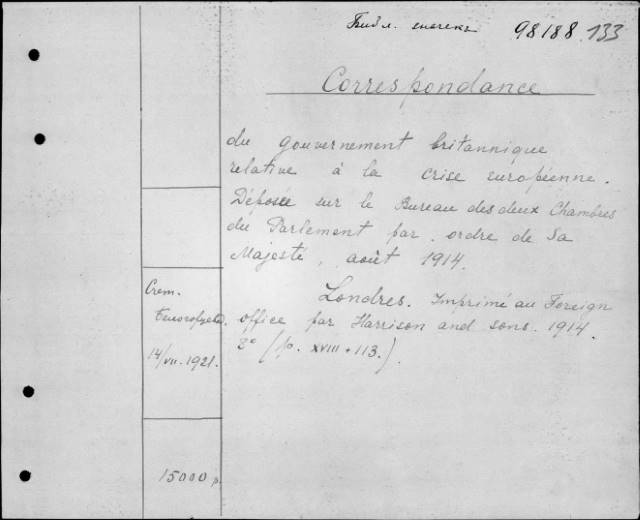 Библ. 98188 133
Correspondance
du gouvernement britannique
relative à la crise européenne.
Déposée sur le Bureau des deux Chambres
du Parlement par ordre de Sa
Majesté, août 1914.
Londres. Imprimé au Foreign
office par Harrison and sons. 1914.
8° (p. XVIII + 113.)
14/VII. 1921.
15000 р.